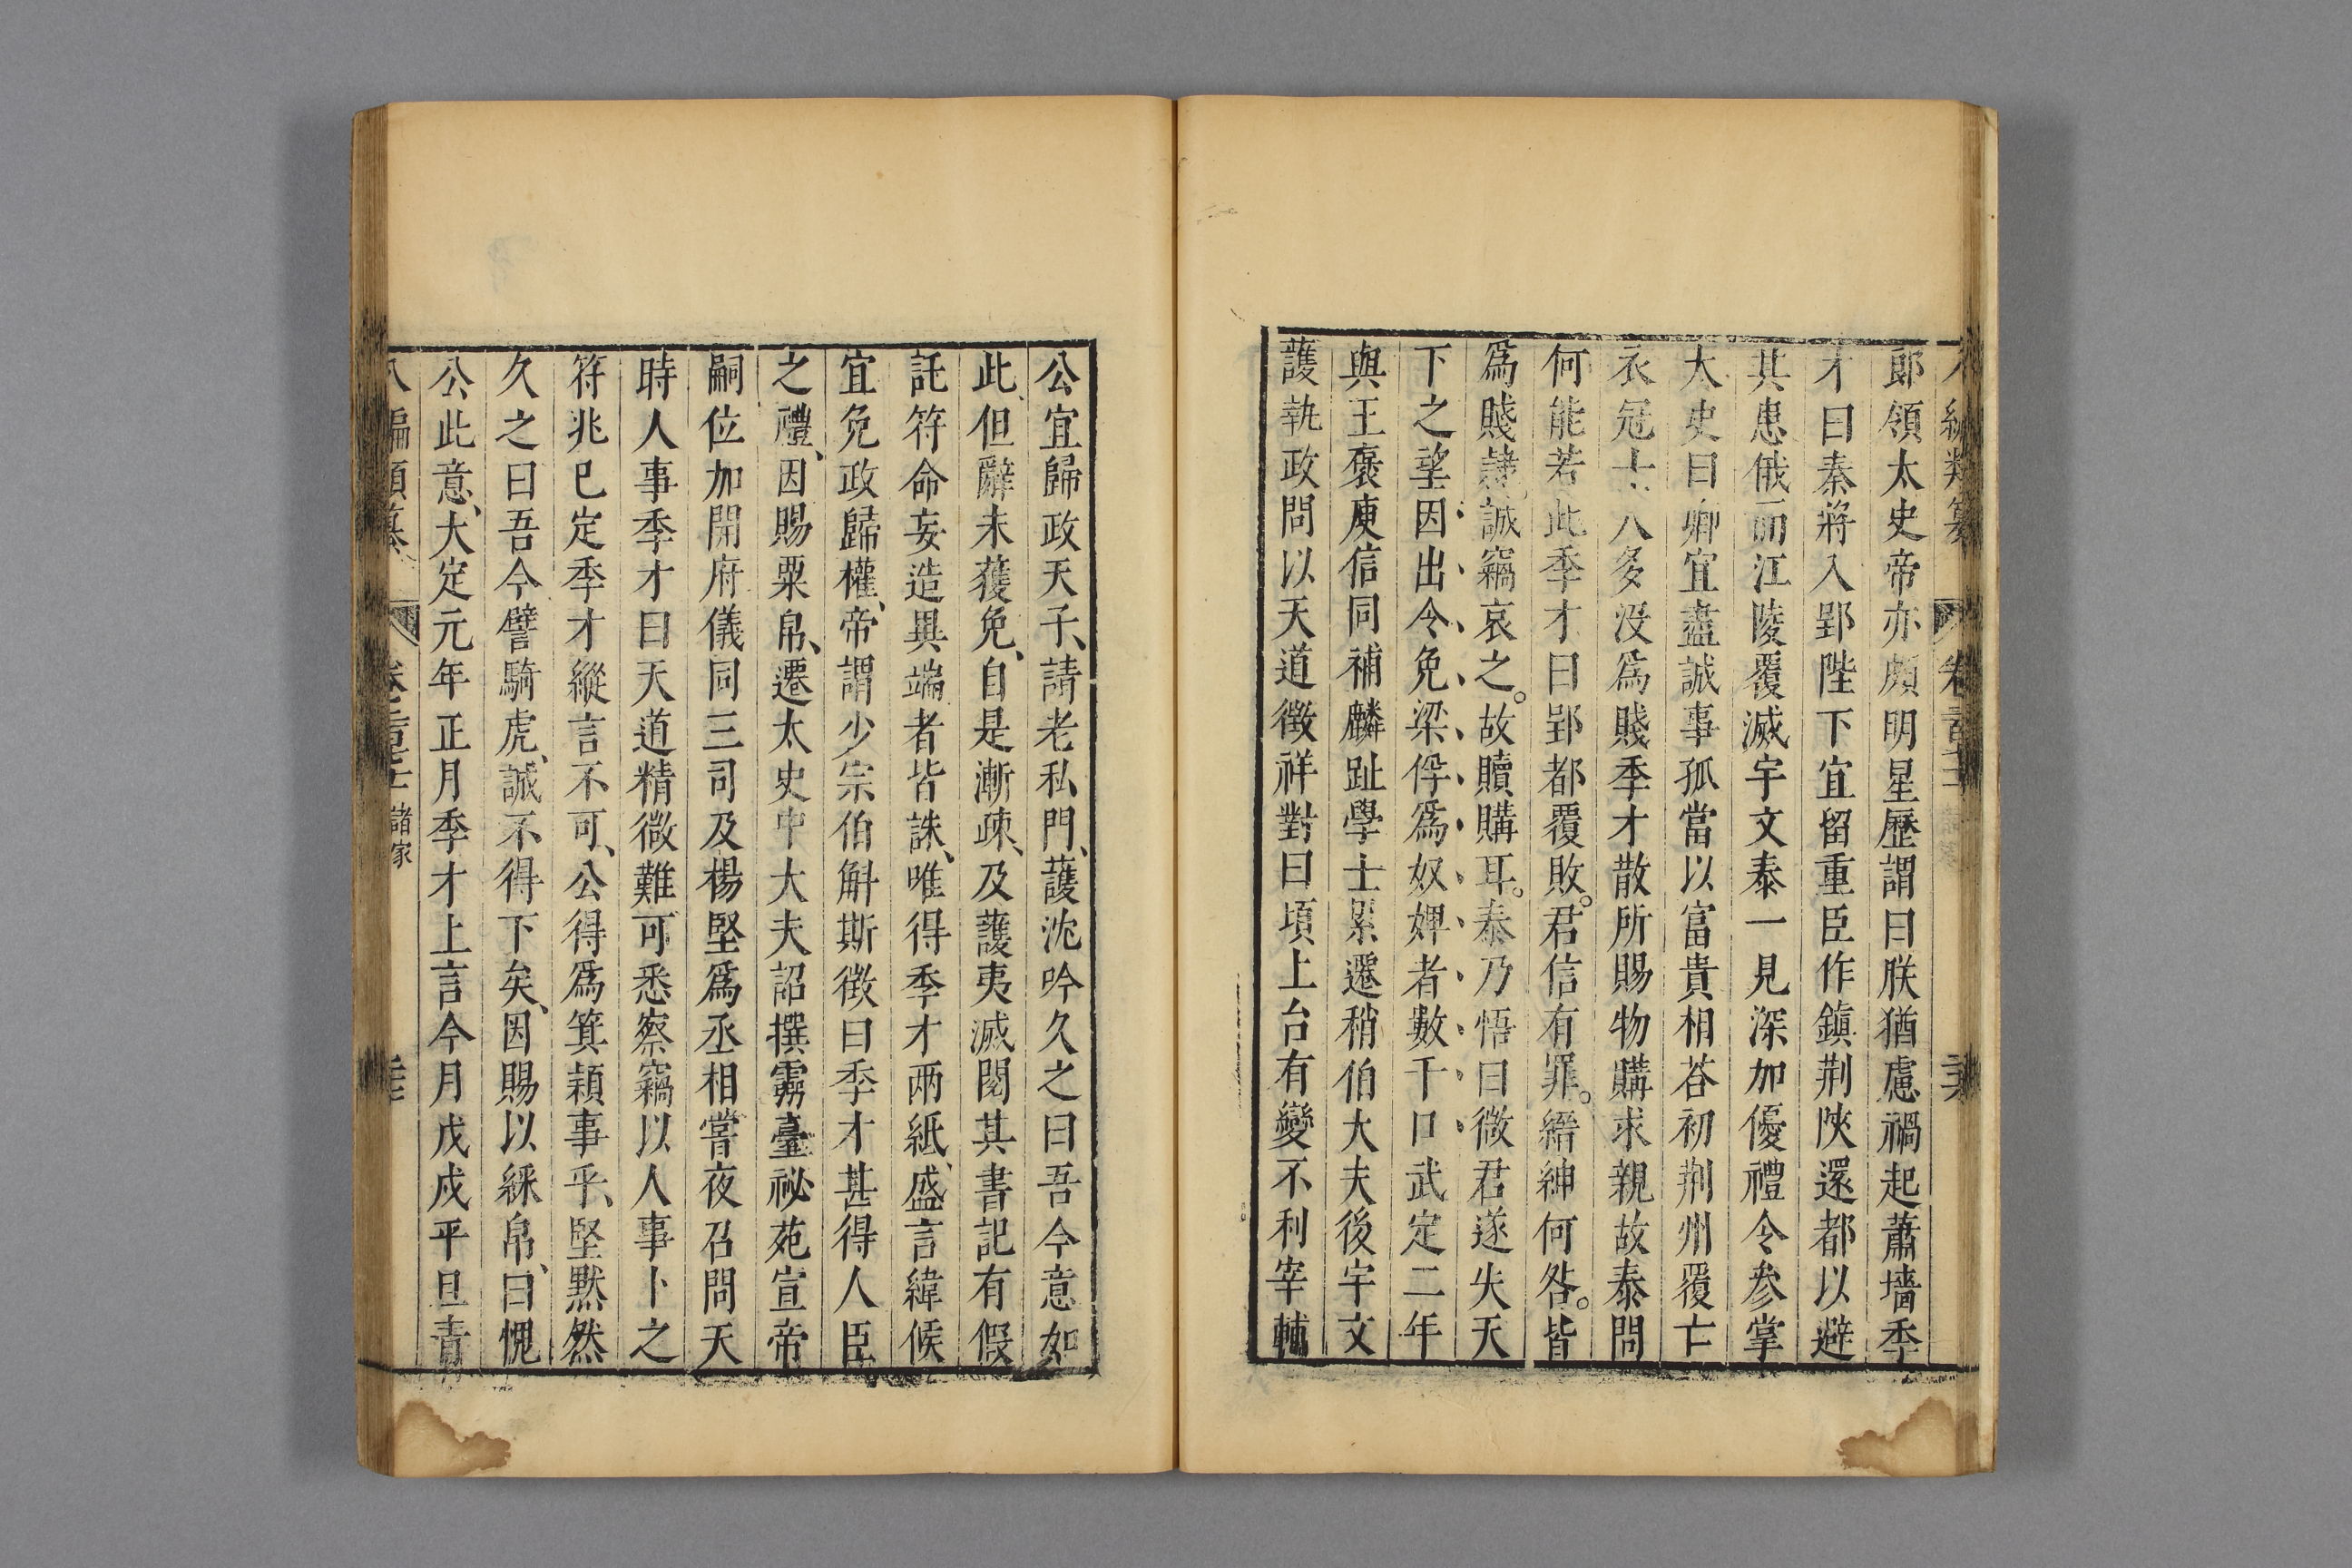 郎領太史帝亦頗明星歷謂曰朕猶慮禍起蕭墻季
才曰秦將入郢陛下宜留重臣作鎮荆陝還都以避
其患俄而江陵覆滅宇文泰一見深加優禮令参掌
大史曰卿宜盡誠事孤當以富貴相荅初荆州覆亡
衣冠士人多没爲賤季才散所賜物購求親故泰問
何能若此季才曰郢都覆敗。君信有罪。縉紳何咎。皆
爲賤隷誠竊哀之。故贖購耳。泰乃悟曰微君遂失天
下之望因出令免梁俘爲奴婢者數千口武定二年
與王褒庾信同補麟趾學士累遷稍伯大夫後宇文
護執政問以天道徴祥對曰頃上台有變不利宰輔
公宜歸政天子、請老私門、護沈吟久之曰吾今意如
此、但辭未獲免、自是漸疎、及護夷滅閱其書記有假
託符命妄造異端者皆誅、唯得季才兩紙、盛言緯候
宜免政歸權、帝謂少宗伯斛斯徴曰季才甚得人臣
之禮、因賜粟帛、遷太史中大夫詔撰靈臺祕苑宣帝
嗣位加開府儀同三司及楊堅爲丞相嘗夜召問天
時人事季才曰天道精微難可悉察竊以人事卜之
符兆已定季才縱言不可、公得爲箕頴事乎、堅默然
久之曰吾今譬騎虎、誠不得下矣、因賜以綵帛、曰愧
公此意、大定元年正月季才上言今月戊戌平旦青
八編類纂 諸家